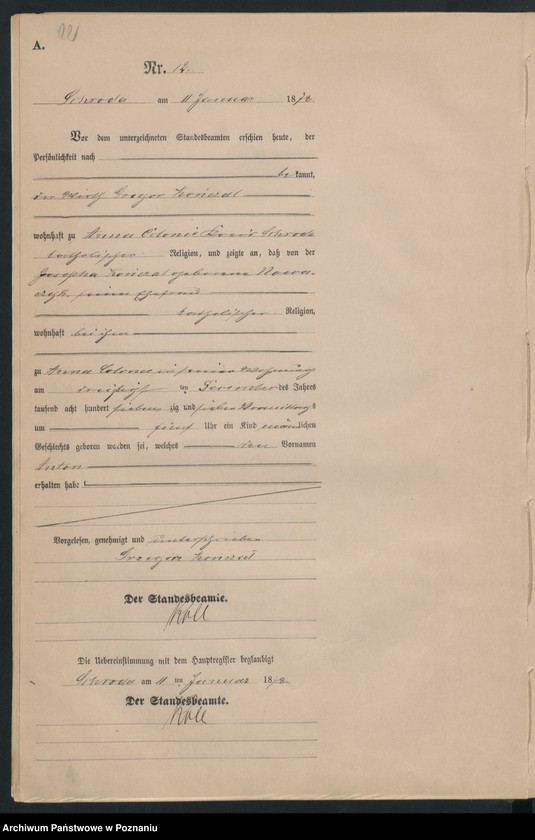 A.
Nr. 12.
Schroda am 11 Januar 1878.
Vor dem unterzeichneten Standesbeamten erschien heute, der
Persönlichkeit nach
be kannt,
der Gregor
wohnhaft zu Anna Schroda
katholischer Religion, und zeigte an, daß von der
Josepha geborenen Nowa-
czyk, seiner Ehefrau
katholischer Religion,
wohnhaft bei ihm
zu Anna in seiner Wohnung
am dreißigsten ten Dezember des Jahres
tausend acht hundert sieben zig und sieben Vormittags
um fünf Uhr ein Kind männlichen
Geschlechts geboren worden sei, welches den Vornamen
Anton
erhalten habe
Vorgelesen, genehmigt und unterschrieben
Der Standesbeamte.
Die Uebereinstimmung mit dem Hauptregister beglaubigt
Schroda am 11 ten Januar 1878.
Der Standesbeamte.
Archiwum Państwowe w Poznaniu